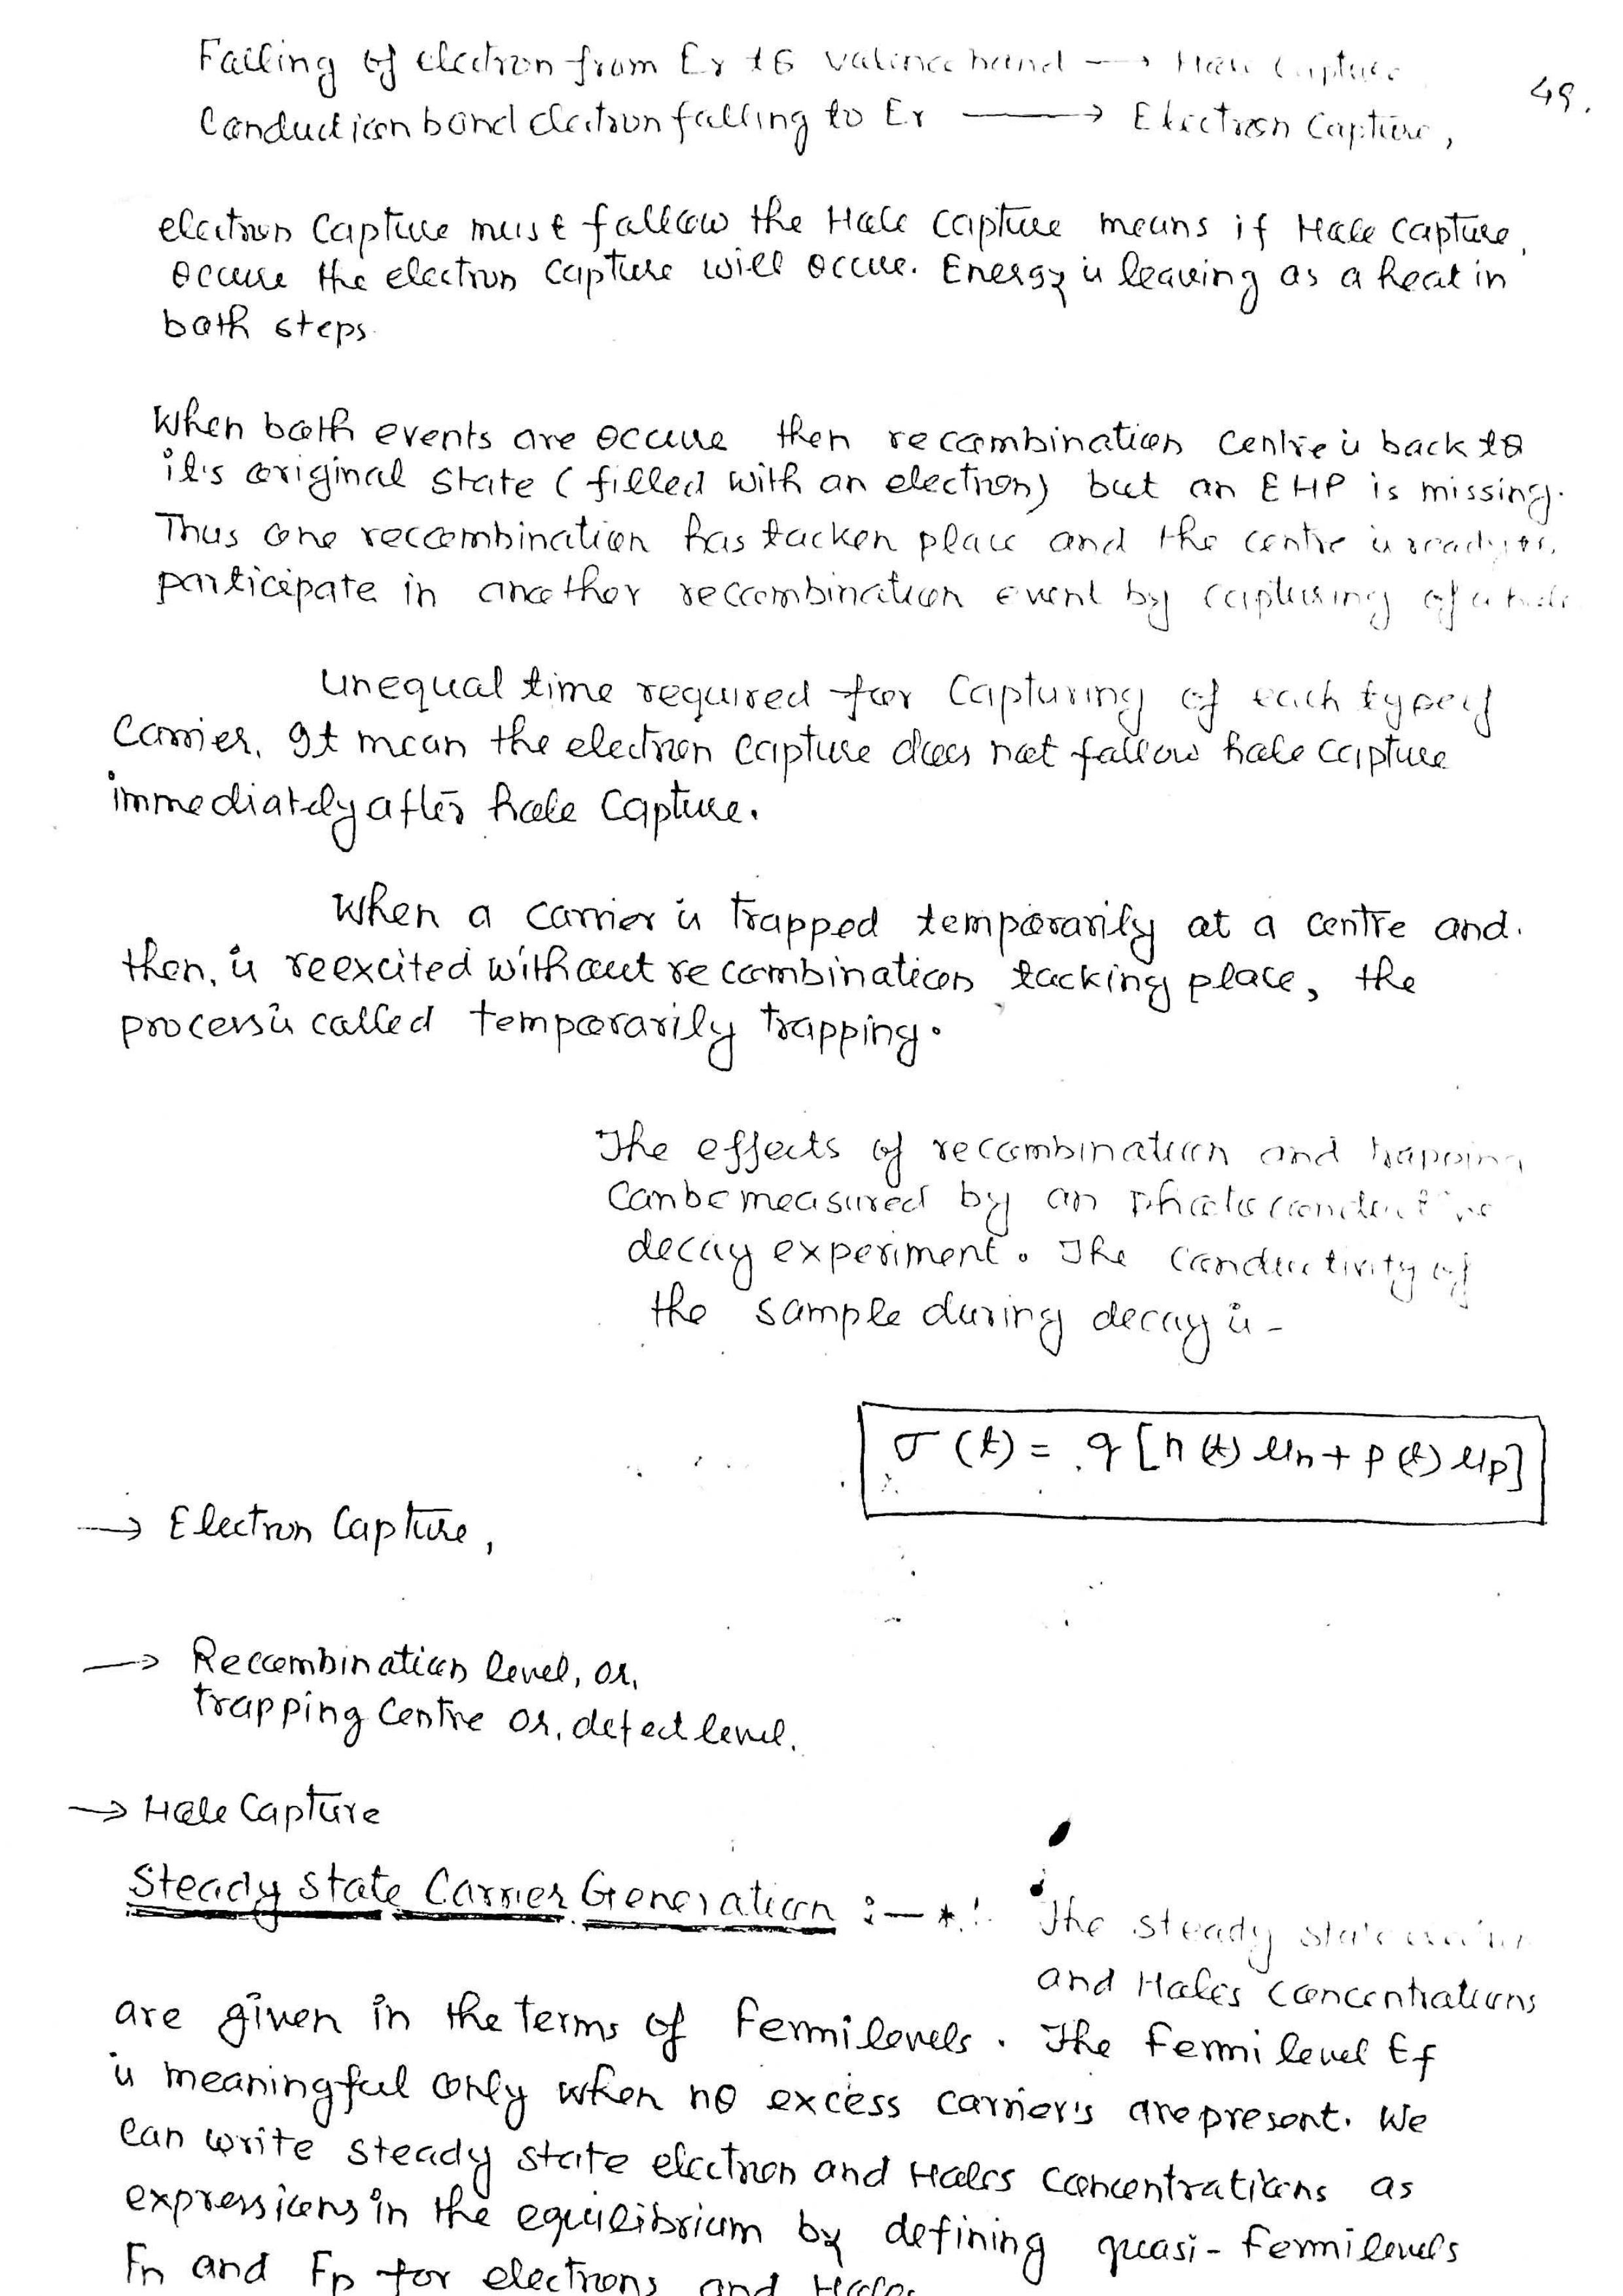 Failing of electron from Er to valince band → Hole Capture
49.
Conduction band electron falling to Er → Electron Capture,
electron Capture must fallow the Hole Capture means if Hole capture,
occure the electron capture will occure. Energy is leaving as a heat in
both steps.
When both events are occure then recombination centre is back to
it's original state (filled with an electron) but an EHP is missing.
Thus one recombination has tacken place and the centre is ready to,
participate in another recombination event by capturing of a hole
unequal time required for Capturing of each type of
Carrier. It mean the electron capture does not fallow hole capture
immediately after hole Capture.
When a carrier is trapped temporarily at a centre and.
then, is reexcited without recombination tacking place, the
process is called temporarily trapping.
The effects of recombination and trapping
can be measured by an Photoconductive
decay experiment. The conductivity of
the sample during decay is -
σ(t) = q [n(t) μn + p(t) μp]
→ Electron Capture,
→ Recombination level, or,
trapping Centre or, defect level.
→ Hole Capture
Steady State Carrier Generation :- *
The steady state
and Holes concentrations
are given in the terms of Fermilevels. The Fermi level Ef
is meaningful only when no excess carrier's are present. We
can write steady state electron and Holes concentrations as
expressions in the equilibrium by defining quasi-Fermilevels
Fn and Fp for electrons and Holes